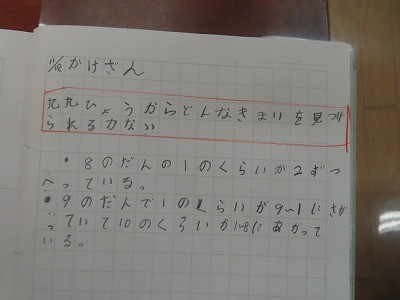 11/12 かけざん
九九ひょうからどんなきまりを見つけ
られるかな??
・8のだんの1のくらいが2ずつ
へっている。
・9のだんで1のくらいが9〜1にさが
っていて10のくらいが1〜8にあがって
いる。